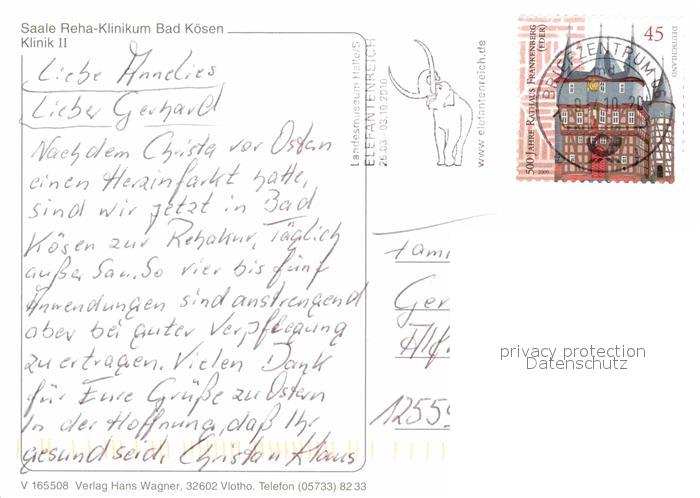 Saale Reha-Klinikum Bad Kösen
Klinik II
Liebe Annelies
Lieber Gerhard
Nachdem Christa vor Ostern
einen Herzinfarkt hatte,
sind wir jetzt in Bad
Kösen zur Rehakur. Täglich
außer Sa u. So vier bis fünf
Anwendungen sind anstrengend
aber bei guter Verpflegung
zu ertragen. Vielen Dank
für Eure Grüße zu Ostern
In der Hoffnung, daß Ihr
gesund seid, Christa u Klaus
V 165508 Verlag Hans Wagner, 32602 Vlotho. Telefon (05733) 82 33
Landesmuseum Halle/S
ELEFANTENREICH
26.03. - 03.10.2010
www.elefantenreich.de
500 JAHRE RATHAUS FRANKENBERG
(EDER)
45
DEUTSCHLAND
BRIEFZENTRUM
Fami
Ger
1255
privacy protection
Datenschutz